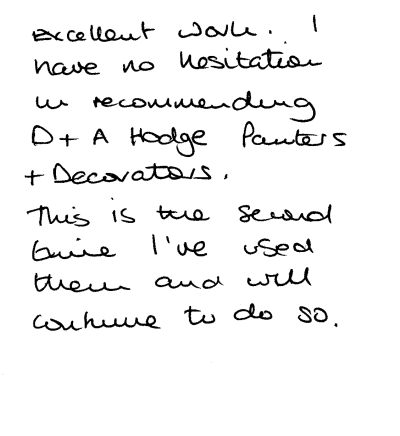 excellent work. I
have no hesitation
in recommending
D + A Hodge Painters
+ Decorators.
This is the second
time I've used
them and will
continue to do so.